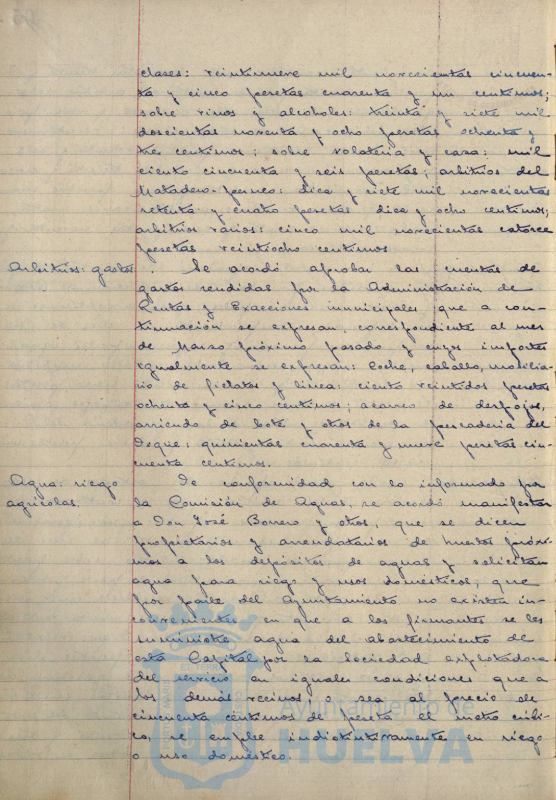 clases: veintinueve mil novecientas cincuen-
ta y cinco pesetas cuarenta y un centimos;
sobre vinos y alcoholes: treinta y siete mil
doscientas noventa y ocho pesetas ochenta y
tres centimos; sobre volateria y caza: mil
ciento cincuenta y seis pesetas; arbitrios del
Matadero-puesto: dica y siete mil novecientas
setenta y cuatro pesetas dica y ocho centimos;
arbitrios varios: cinco mil novecientas catorce
pesetas veintiocho centimos
Arbitrios: gastos. Se acordó aprobar las cuentas de
gastos rendidas por la Administración de
Rentas y Exacciones municipales que a con-
tinuación se expresan, correspondiente al mes
de Marzo próximo pasado y cuyos importes
igualmente se expresan: Coche, caballo, mobilia-
rio de fielatos y linea: ciento veintidos pesetas
ochenta y cinco centimos; acarreo de despojos,
arriendo de bote y otros de la pescaderia del
Dique: quinientas cuarenta y nueve pesetas cin-
cuenta centimos.
Agua: riego agricolas. De conformidad con lo informado por
la Comisión de Aguas, se acordó manifestar
a Don José Borrero y otros, que se dicen
propietarios y arrendatarios de huertos próxi-
mos a los depósitos de aguas y solicitan
agua para riego y usos domésticos, que
por parte del Ayuntamiento no existia in-
conveniente en que a los firmantes se les
suministre agua del abastecimiento de
esta Capital por la Sociedad explotadora
del servicio en iguales condiciones que a
los demás vecinos, o sea al precio de
cincuenta centimos de peseta el metro cúbi-
co, se emplee indistintamente en riego
o uso doméstico.
Ayuntamiento de
HUELVA